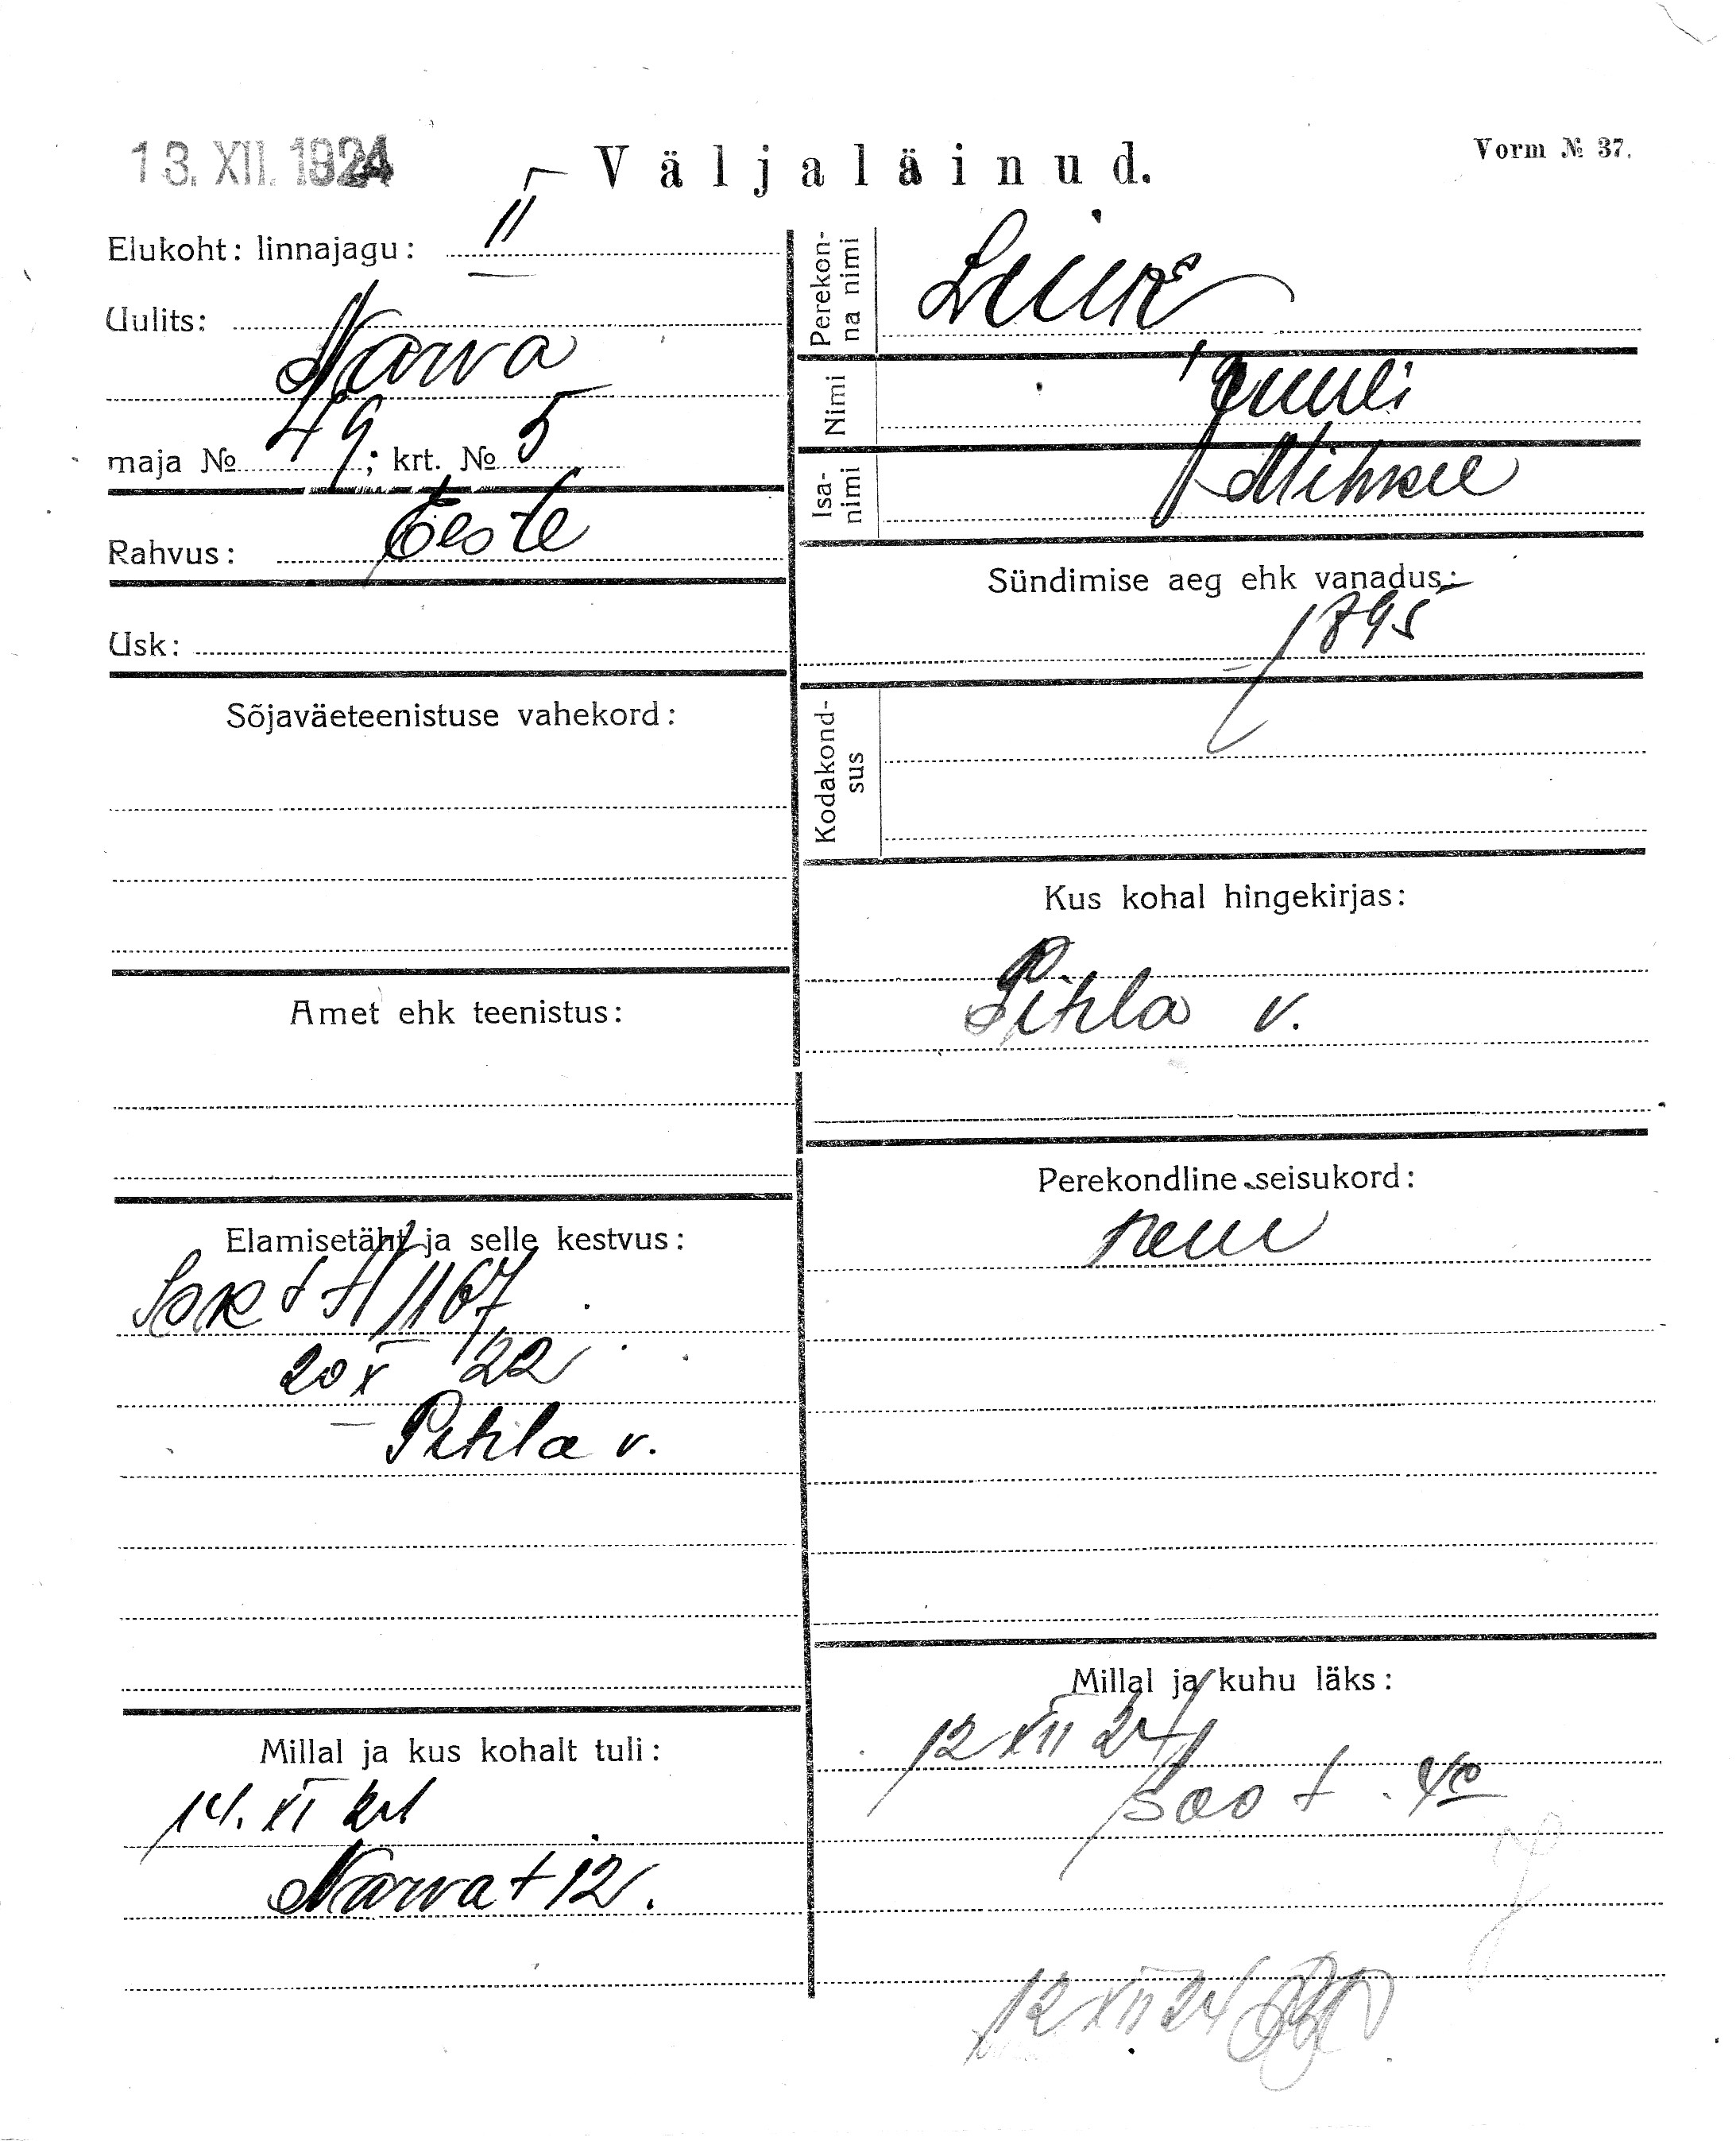 13. XII. 1924
Väljaläinud.
Vorm № 37.
Elukoht: linnajagu: II
Uulits:
Narva
maja № 49; krt. № 5
Rahvus: Eeste
Usk:
Sõjaväeteenistuse vahekord:
Amet ehk teenistus:
Elamisetäht ja selle kestvus:
1167
20 X 22
Pihla v.
Millal ja kus kohalt tuli:
14. XI 24
Narva t 12.
Perekon-
na nimi
Nimi
Juuli
Isa-
nimi
Mihkel
Sündimise aeg ehk vanadus:
1895
Kodakond-
sus
Kus kohal hingekirjas:
Pihla v.
Perekondline seisukord:
Millal ja kuhu läks:
12 XII 24
Soo t.
12 XII 24